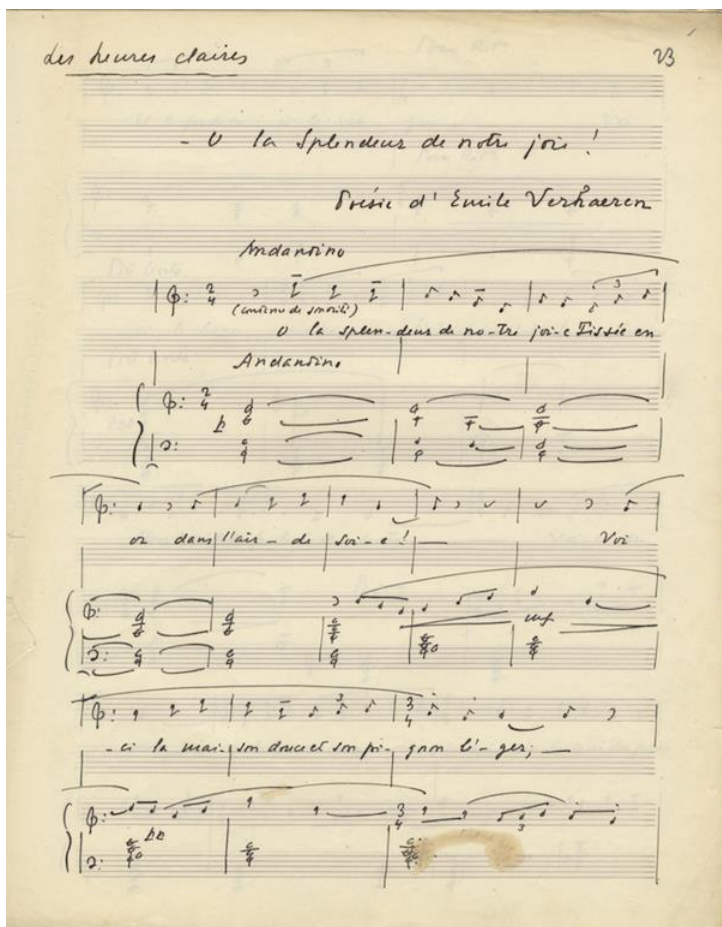 Les heures claires 23
- O la Splendeur de notre joie !
Poésie d' Emile Verhaeren
Andantino
2 4
(continu de sonorité)
3
O la splen-deur de no-tre joi-e Tissée en
Andantino
2 4
p
or dans l'air-de soi-e! — Voi
mf
3
3 4
-ci la mai-son douce et son pi-gnon lé-ger; —
pp
3 4
3